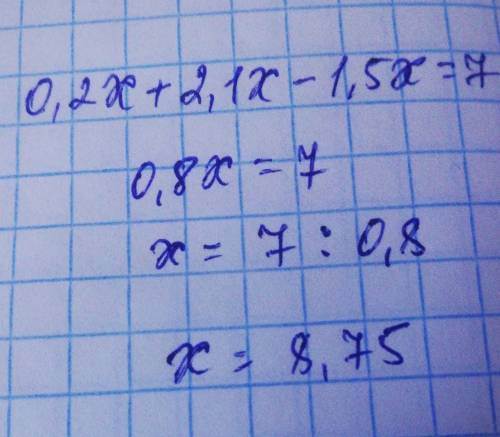 0,2x + 2,1x - 1,5x = 7
0,8x = 7
x = 7 : 0,8
x = 8,75